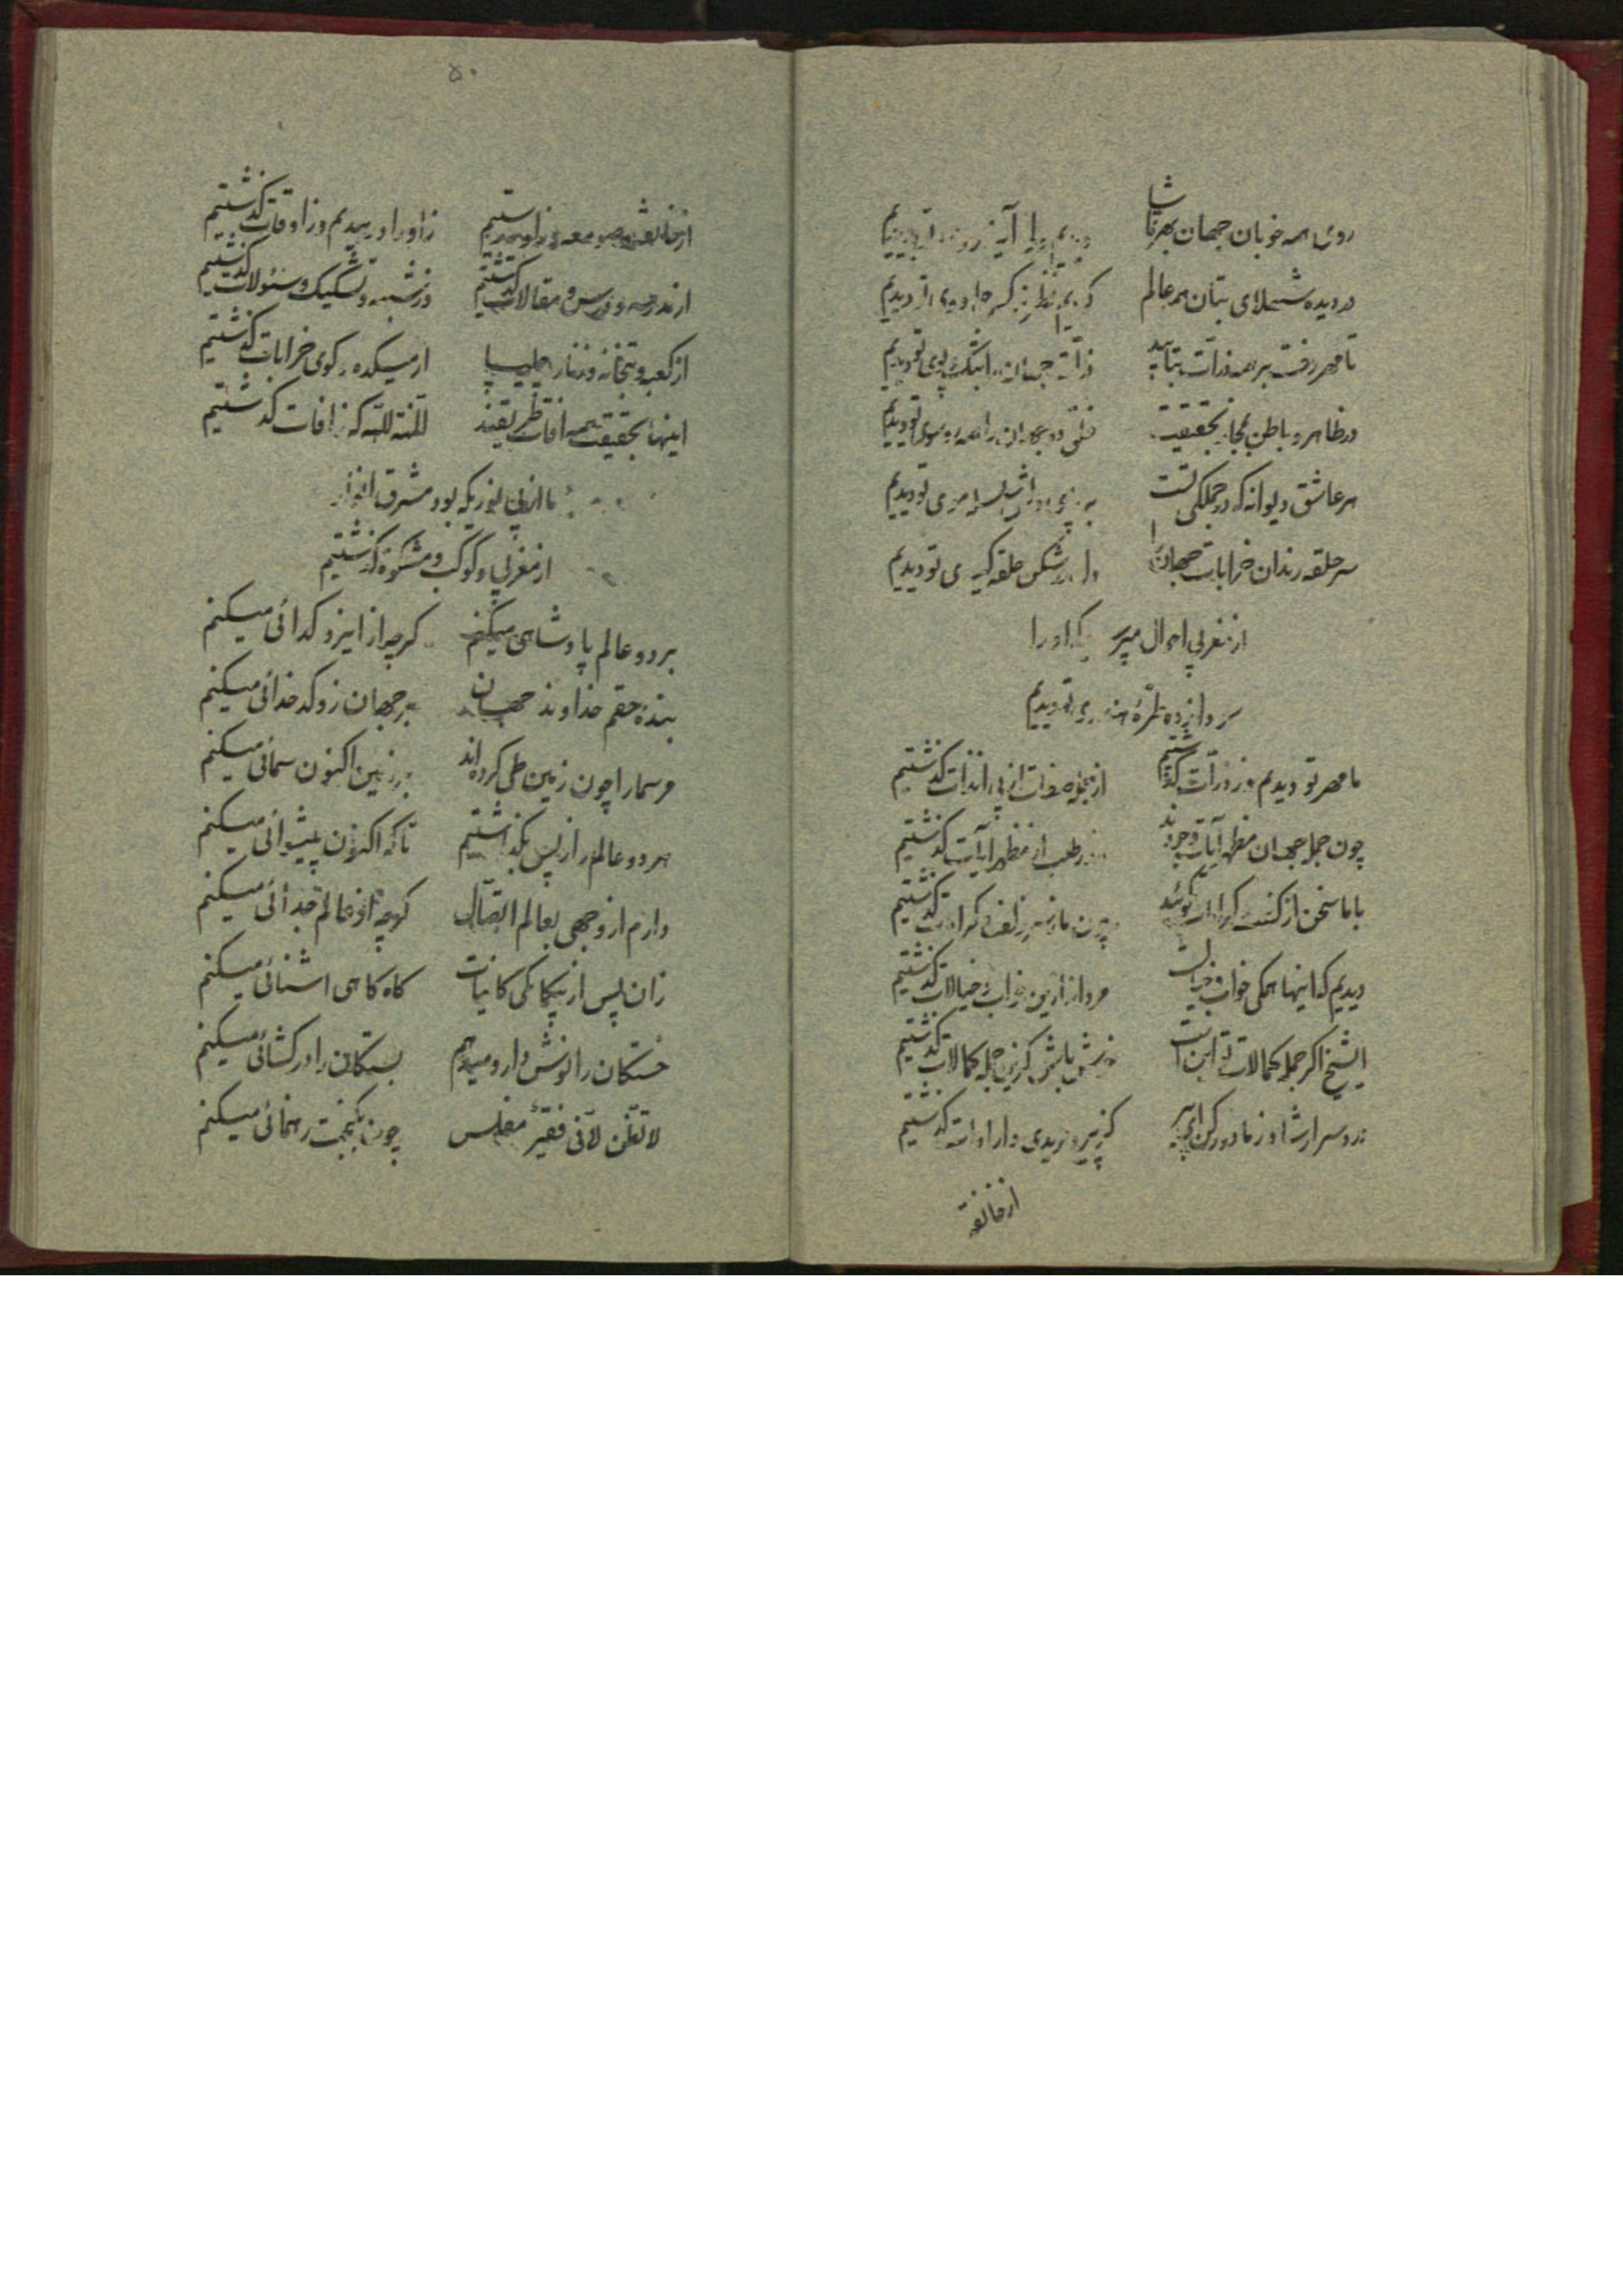 روی همه خوبان جهان بهر تماشا دیدیم ولی آینه روی تو دیدیم
در دیده شهلای بتان همه عالم کردیم نظر نرگس جادوی تو دیدیم
تا مهر رخت بر همه ذرات بتابید ذرات جهان را بتک و پوی تو دیدیم
در ظاهر و باطن بمجاز و حقیقت خلق دو جهان را همه رو سوی تو دیدیم
هر عاشق دیوانه که در جملکی تست
سر حلقه رندان خرابات جهانرا دل در شکن حلقه کیسوی تو دیدیم
از مغربی احوال مپرسید که او را
سودازده طره هندوی تو دیدیم
ما مهر تو دیدیم و ز ذرات کذشتیم از جمله صفات از پی آن ذات کذشتیم
چون جمله جهان مظهر آیات وجودند اندر طلب از مظهر آیات کذشتیم
با ما سخن از کشف و کرامات نکوئید چون ما ز سر کشف و کرامات کذشتیم
دیدیم که اینها همکی خواب و خیالست مردانه ازین خواب و خیالات کذشتیم
ای شیخ اکر جمله کمالات تو اینست خوش باش کزین جمله کمالات کذشتیم
رو سر ارشاد ز ما دور کن ای پیر کز پیر و مریدی و ارادات کذشتیم
از خانقه
۵۰
از خانقه و صومعه و زاویه رستیم ز اوراد رهیدیم و ز اوقات کذشتیم
از مدرسه و درس و مقالات کذشتیم وز شبهه و تشکیک و سئولات کذشتیم
از کعبه و بتخانه و زنار و چلیپا از میکده و کوی خرابات کذشتیم
اینها بحقیقت همه آفات طریقند المنة لله که ز افات کذشتیم
ما از پی نوریکه بود مشرق انوار
از مغربی و کوکب و مشکوة کذشتیم
بر دو عالم پادشاهی میکنم کرچه از ایزد کدائی میکنم
بنده حقم خداوند جهان بر جهان زو کدخدائی میکنم
مر سما را چون زمین طی کرده‌اند بر زمین اکنون سمائی میکنم
هر دو عالم را ز پس بکذاشتیم تا که اکنون پیشوائی میکنم
دارم از وجهی بعالم اتصال کرچه از عالم جدائی میکنم
زان پس از بیکانکی کاینات کاه کاهی اشنائی میکنم
خستکان را نوش دارو میدهم بستکان را در کشائی میکنم
لا تظنن لاننی فقیر مفلس چون بکنجت رهنمائی میکنم